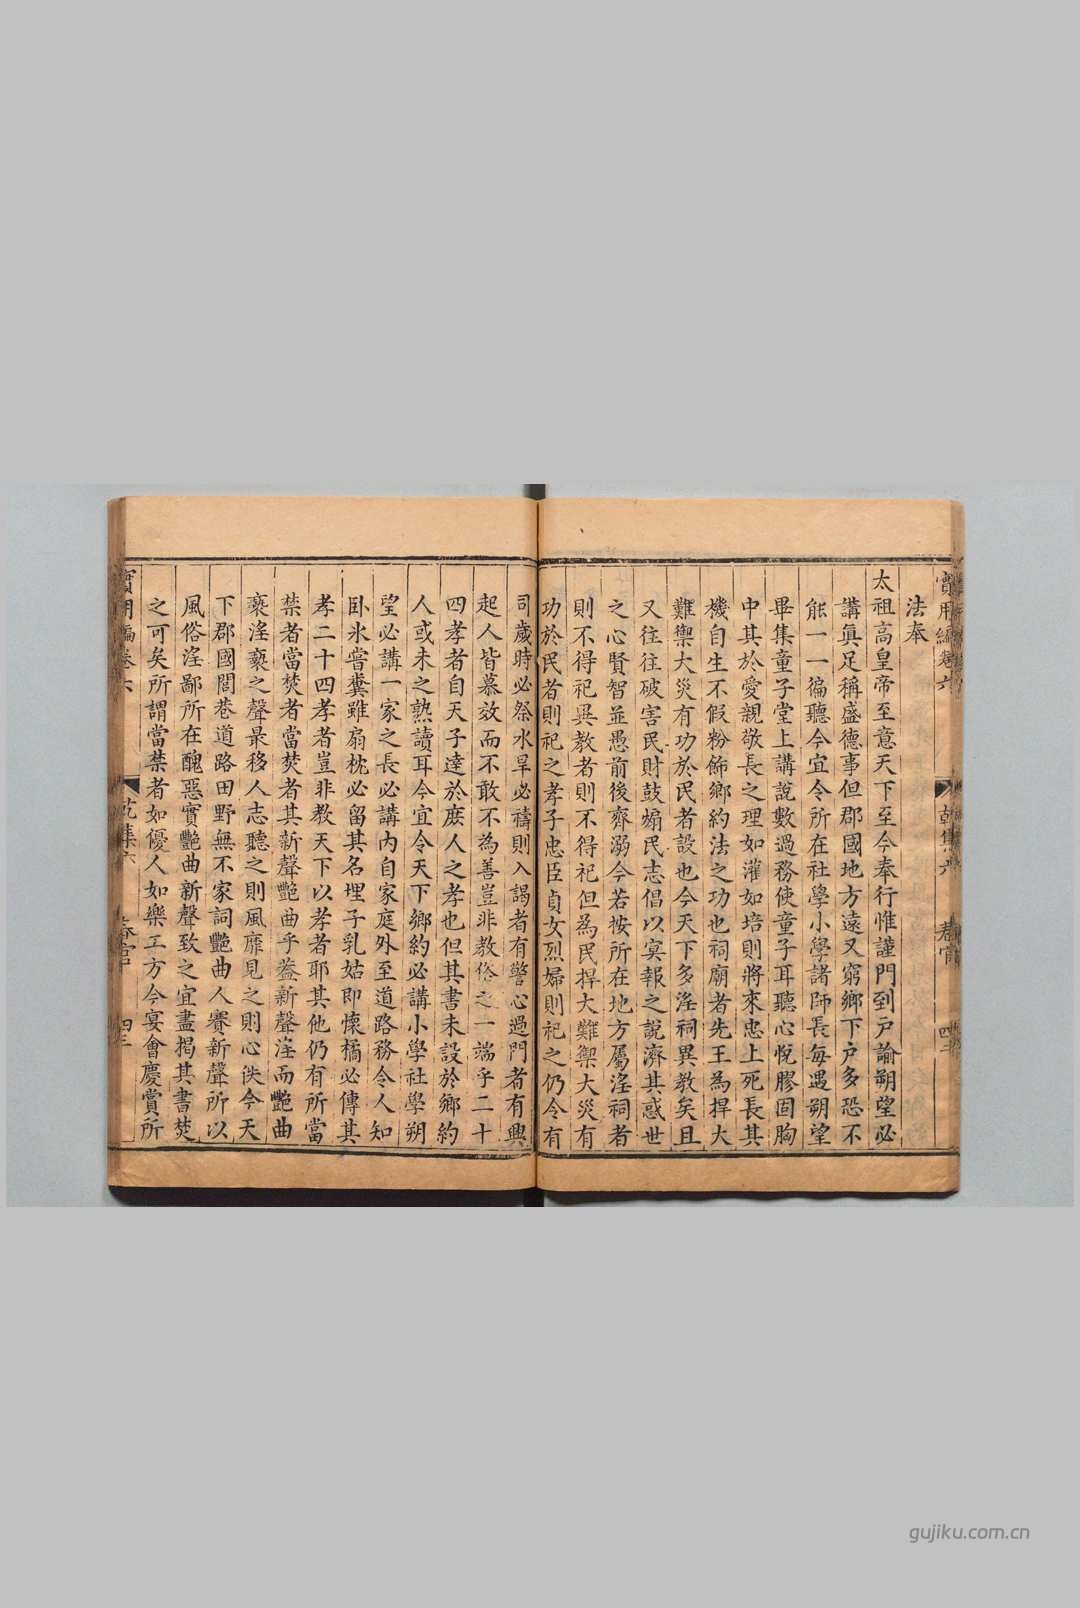 實用編卷六
乾集六
春官
四二
法奉
太祖高皇帝至意天下至今奉行惟謹門到戸諭朔望必
講眞足稱盛德事但郡國地方遠又窮鄉下户多恐不
能一一徧聽今宜令所在社學小學諸師長每遇朔望
畢集童子堂上講說數過務使童子耳聽心悅膠固胸
中其於愛親敬長之理如灌如培則將來忠上死長其
機自生不假粉飾鄉約法之功也祠廟者先王為捍大
難禦大災有功於民者設也今天下多淫祠異教矣且
又往往破害民財鼓煽民志倡以冥報之說濟其惑世
之心賢智並愚前後齊溺今若按所在地方屬淫祠者
則不得祀異教者則不得祀但為民捍大難禦大災有
功於民者則祀之孝子忠臣貞女烈婦則祀之仍令有
司歲時必祭水旱必禱則入謁者有警心過門者有興
起人皆慕效而不敢不為善豈非教俗之一端乎二十
四孝者自天子達於庶人之孝也但其書未設於鄉約
人或未之熟讀耳今宜令天下鄉約必講小學社學朔
望必講一家之長必講內自家庭外至道路務令人知
臥氷嘗糞雖扇枕必留其名埋子乳姑即懷橘必傳其
孝二十四孝者豈非教天下以孝者耶其他仍有所當
禁者當焚者當焚者其新聲艷曲乎葢新聲淫而艷曲
褻淫褻之聲最移人志聽之則風靡見之則心佚今天
下郡國閭巷道路田野無不家詞艷曲人賽新聲所以
風俗淫鄙所在醜惡實艷曲新聲致之宜盡揭其書焚
之可矣所謂當禁者如優人如樂工方今宴會慶賞所
實用編卷六
乾集六
春官
四三
gujiku.com.cn